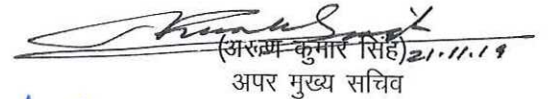 (अरूण कुमार सिंह) 21.11.19
अपर मुख्य सचिव